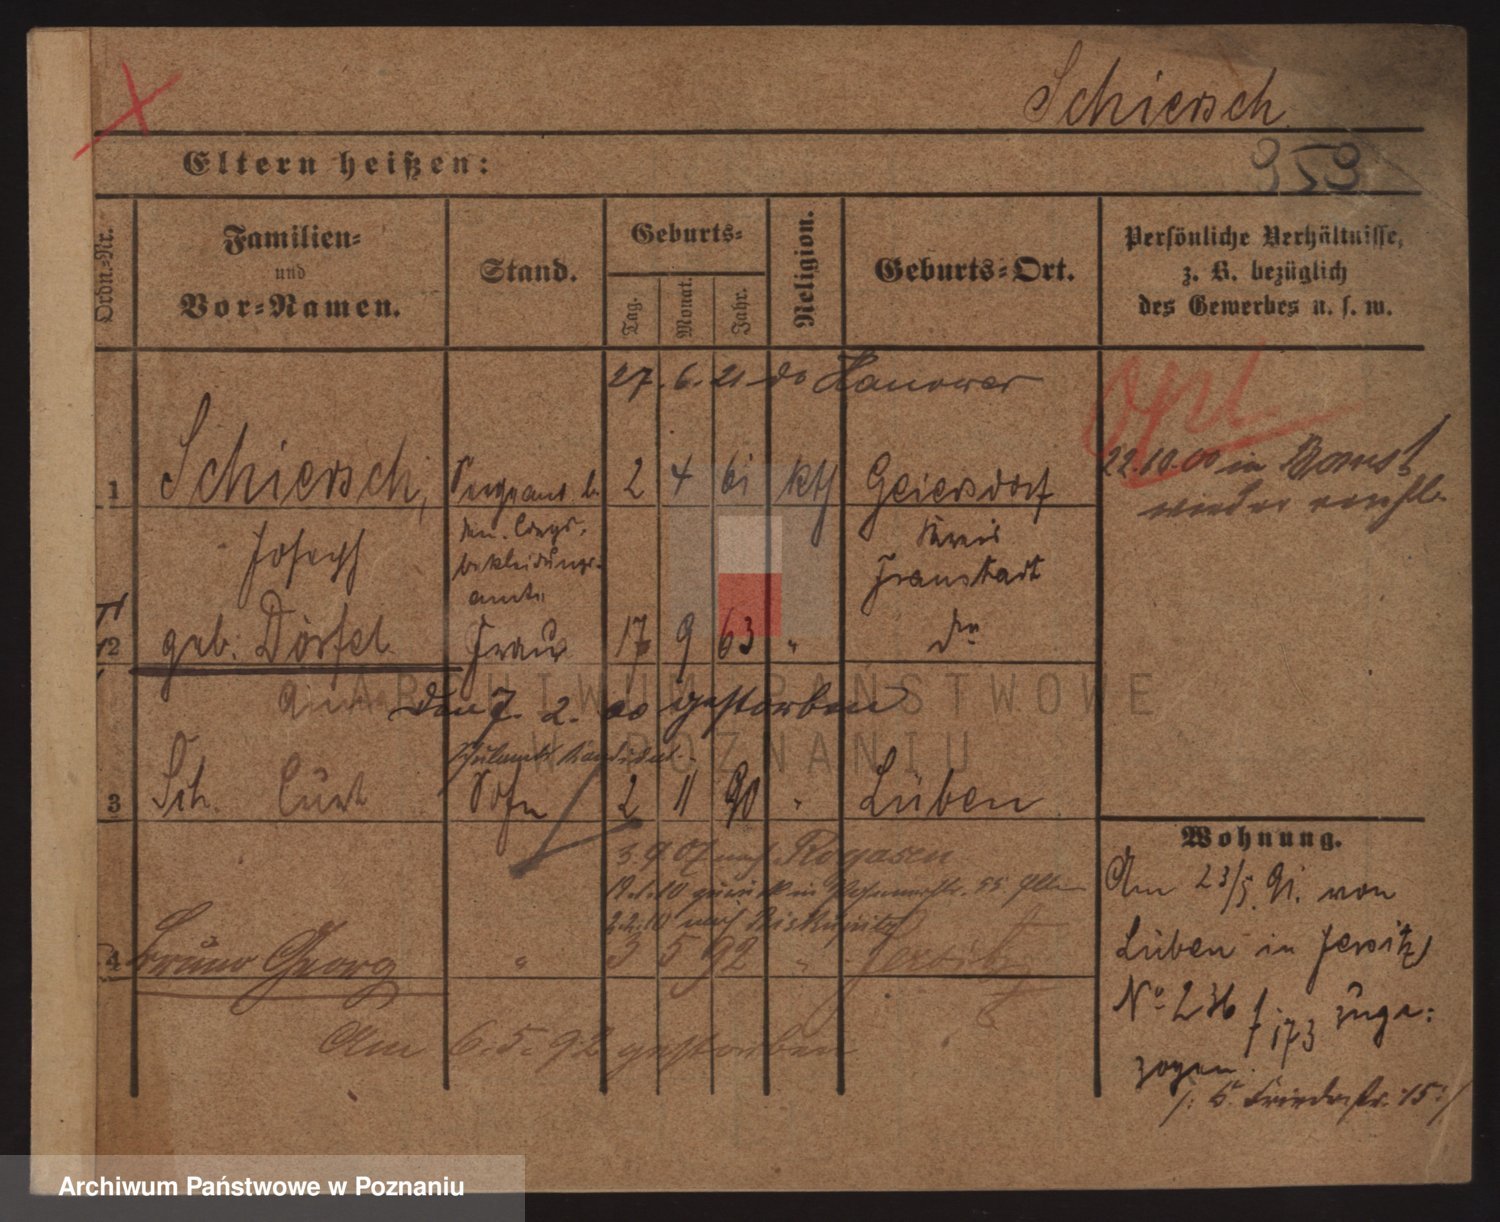 Schiersch
959
Eltern heißen:
Ordn.-Nr.
Familien-
und
Vor-Namen.
Stand.
Geburts-
Tag.
Monat.
Jahr.
Religion.
Geburts-Ort.
Persönliche Verhältnisse,
z. B. bezüglich
des Gewerbes u. s. w.
27. 6. 21 do Hanower
Opl.
1 Schiersch, Sergeant b. 2 4 61 kth Geiersdorf
22.10.00 in Bomst
wieder
Joseph
bekleidungs-
amts
Kreis
Fraustadt
2 geb: Dörfel Frau 17 9 63 " do
den 7. 2. 00 gestorben
3 Sch. Curt Sohn 2 11 90 " Lüben
3. 9 07 nach Rogasen
19.1.10 zurück in
2.2.10 nach
4 Bruno Georg " 3 5 92 " Jersitz
Am 6. 5. 92 gestorben
Wohnung.
Am 23/5. 91. von
Lüben in Jersitz
No 236 f. 173 zuge:
zogen.
ARCHIWUM PAŃSTWOWE
W POZNANIU
Archiwum Państwowe w Poznaniu